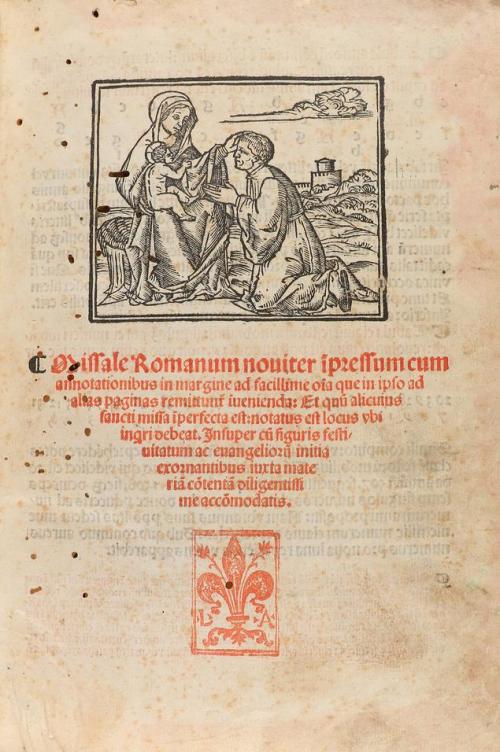 ¶ Missale Romanum noviter īpressum cum
annotationibus in margine ad facillime oīa que in ipso ad
alias paginas remittunť īuenienda: Et quū alicuius
sancti missa īperfecta est: notatus est locus vbi
inq̄ri debeat. Insuper cū figuris festi/
uitatum ac euangeliorū initia
exornantibus iuxta mate
riā cōtentā diligentissi
me accōmodatis.
L A